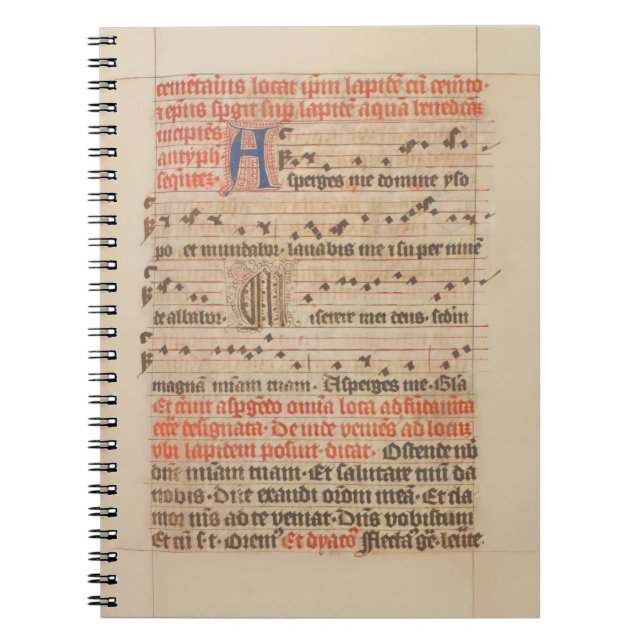 cemẽtarius locat ip̃m lapidẽ cũ cemẽto ·
⁊ ep̃us sp̃git sup̃ lapidẽ aquã benedictã
incipiẽs
antyph̃·
sequẽtẽ·
Asperges me domine yso
po et mundabor · lauabis me ⁊ super niuẽ
de albabor · Miserere mei deus · scd̃m
magnã mĩam tuam · Asperges me · Glã
Et cũ aspg̃edo om̃ia loca ad
designata · De inde veniẽs ad locũ
vbi lapidem posuit · dicat · Ostende nb̃
dñe mĩam tuam · Et salutare tuũ da
nobis · Dñe exaudi or̃om meã · Et cla
mor m̃s ad te veniat · Dñs vobiscum
Et cũ s̃· t̃· Orem⁹ Et dyacõ Flectam⁹ gẽ· leuate